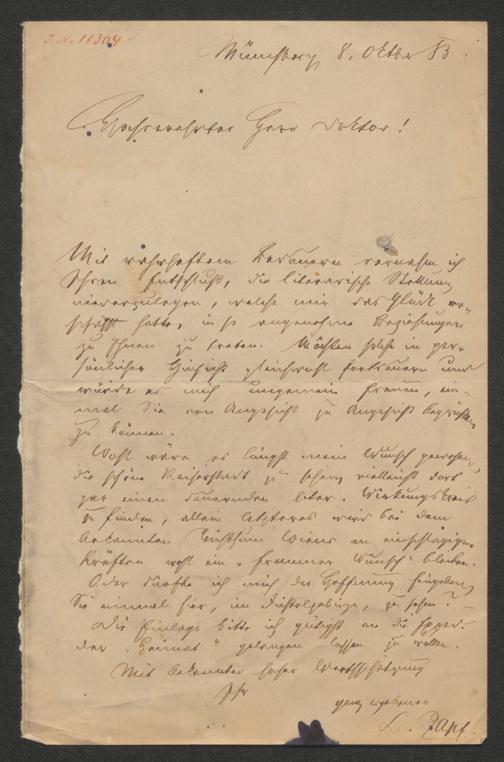 J.N. 11304
Münchberg, 8. Oktber 83.
Hochverehrter Herr Doktor!
Mit wahrhaftem Bedauern vernehm ich
Ihren Entschluß, die literarische Stellung
niederzulegen, welche mir das Glück ver-
schafft hatte, in so angenehme Beziehungen
zu Ihnen zu treten. Möchten solche in per-
sönlicher Hinsicht gleichwohl fortdauern und
würde es mich ungemein freuen, ein-
mal Sie von Angesicht zu Angesicht begrüßen
zu können.
Wohl wäre es längst mein Wunsch gewesen,
die schöne Kaiserstadt zu sehen, vielleicht dort
gar einen dauernden liter. Wirkungskreis
zu finden, allein letzteres wird bei dem
bekannten Reichthum Wiens an einschlägigen
Kräften wohl ein „frommer Wunsch" bleiben.
Oder dürfte ich mich der Hoffnung hingeben,
Sie einmal hier, im Fichtelgebirge, zu sehen? –
Die Einlage bitte ich gütigst an die Exped.
der „Heimat" gelangen lassen zu wollen.
Mit bekannter hoher Werthschätzung
Ihr
ganz ergebener
L. Zapf.